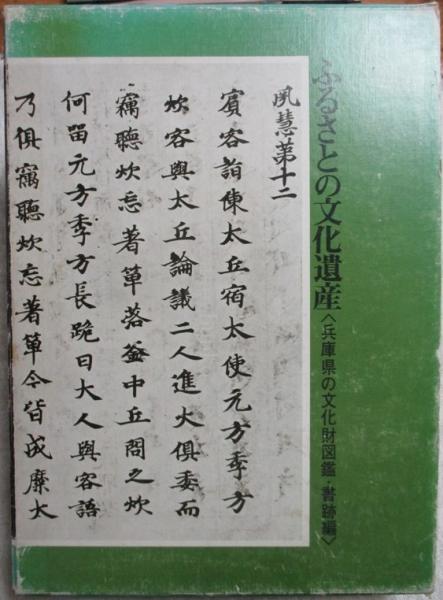 ふるさとの文化遺産
〈兵庫県の文化財図鑑・書跡編〉
夙慧第十二
賓客詣陳太丘宿太使元方季方
炊客與太丘論議二人進火俱委而
竊聽炊忘著箄落釜中丘問之炊
何留元方季方長跪曰大人與客語
乃俱竊聽炊忘著箄今皆成糜太